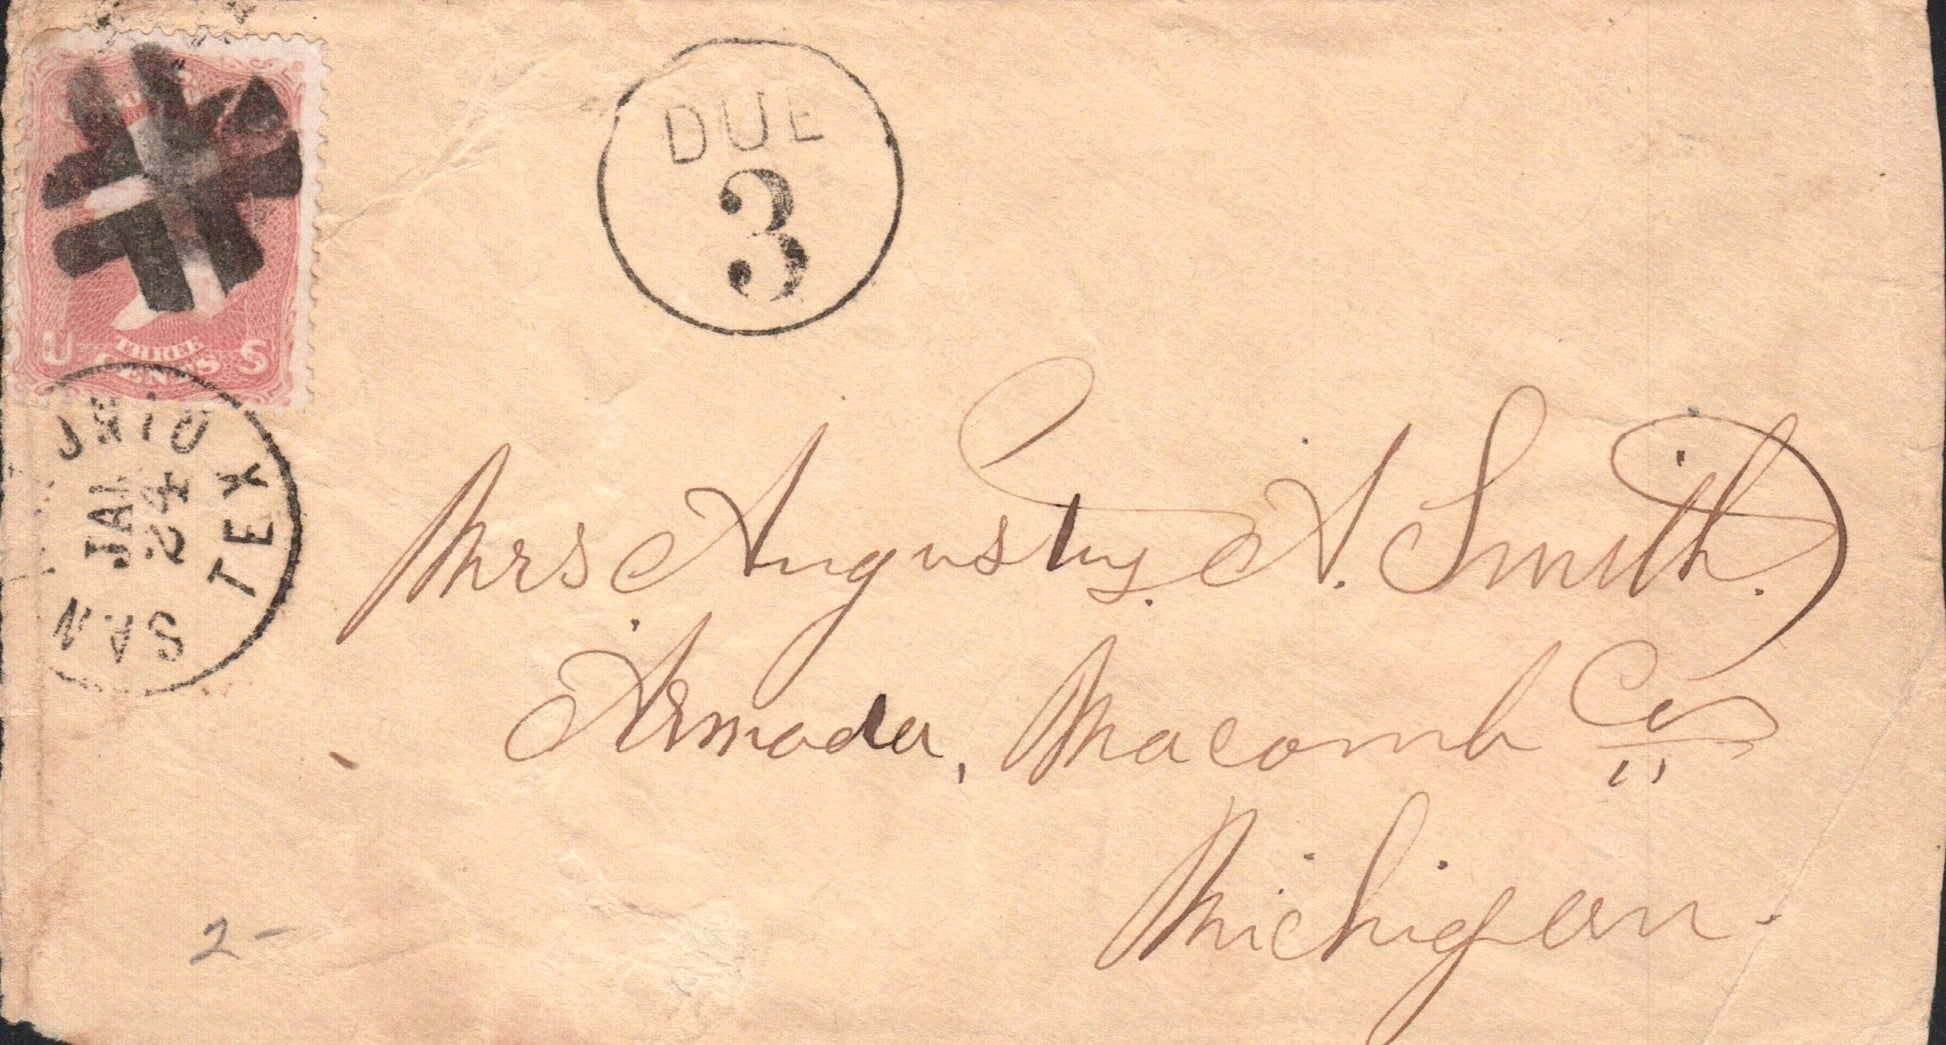 DUE
3
U S
THREE
CENTS
SAN ONIO TEX
JAN
24
Mrs Augustus A. Smith.
Armada, Macomb Co
Michigan.
2-